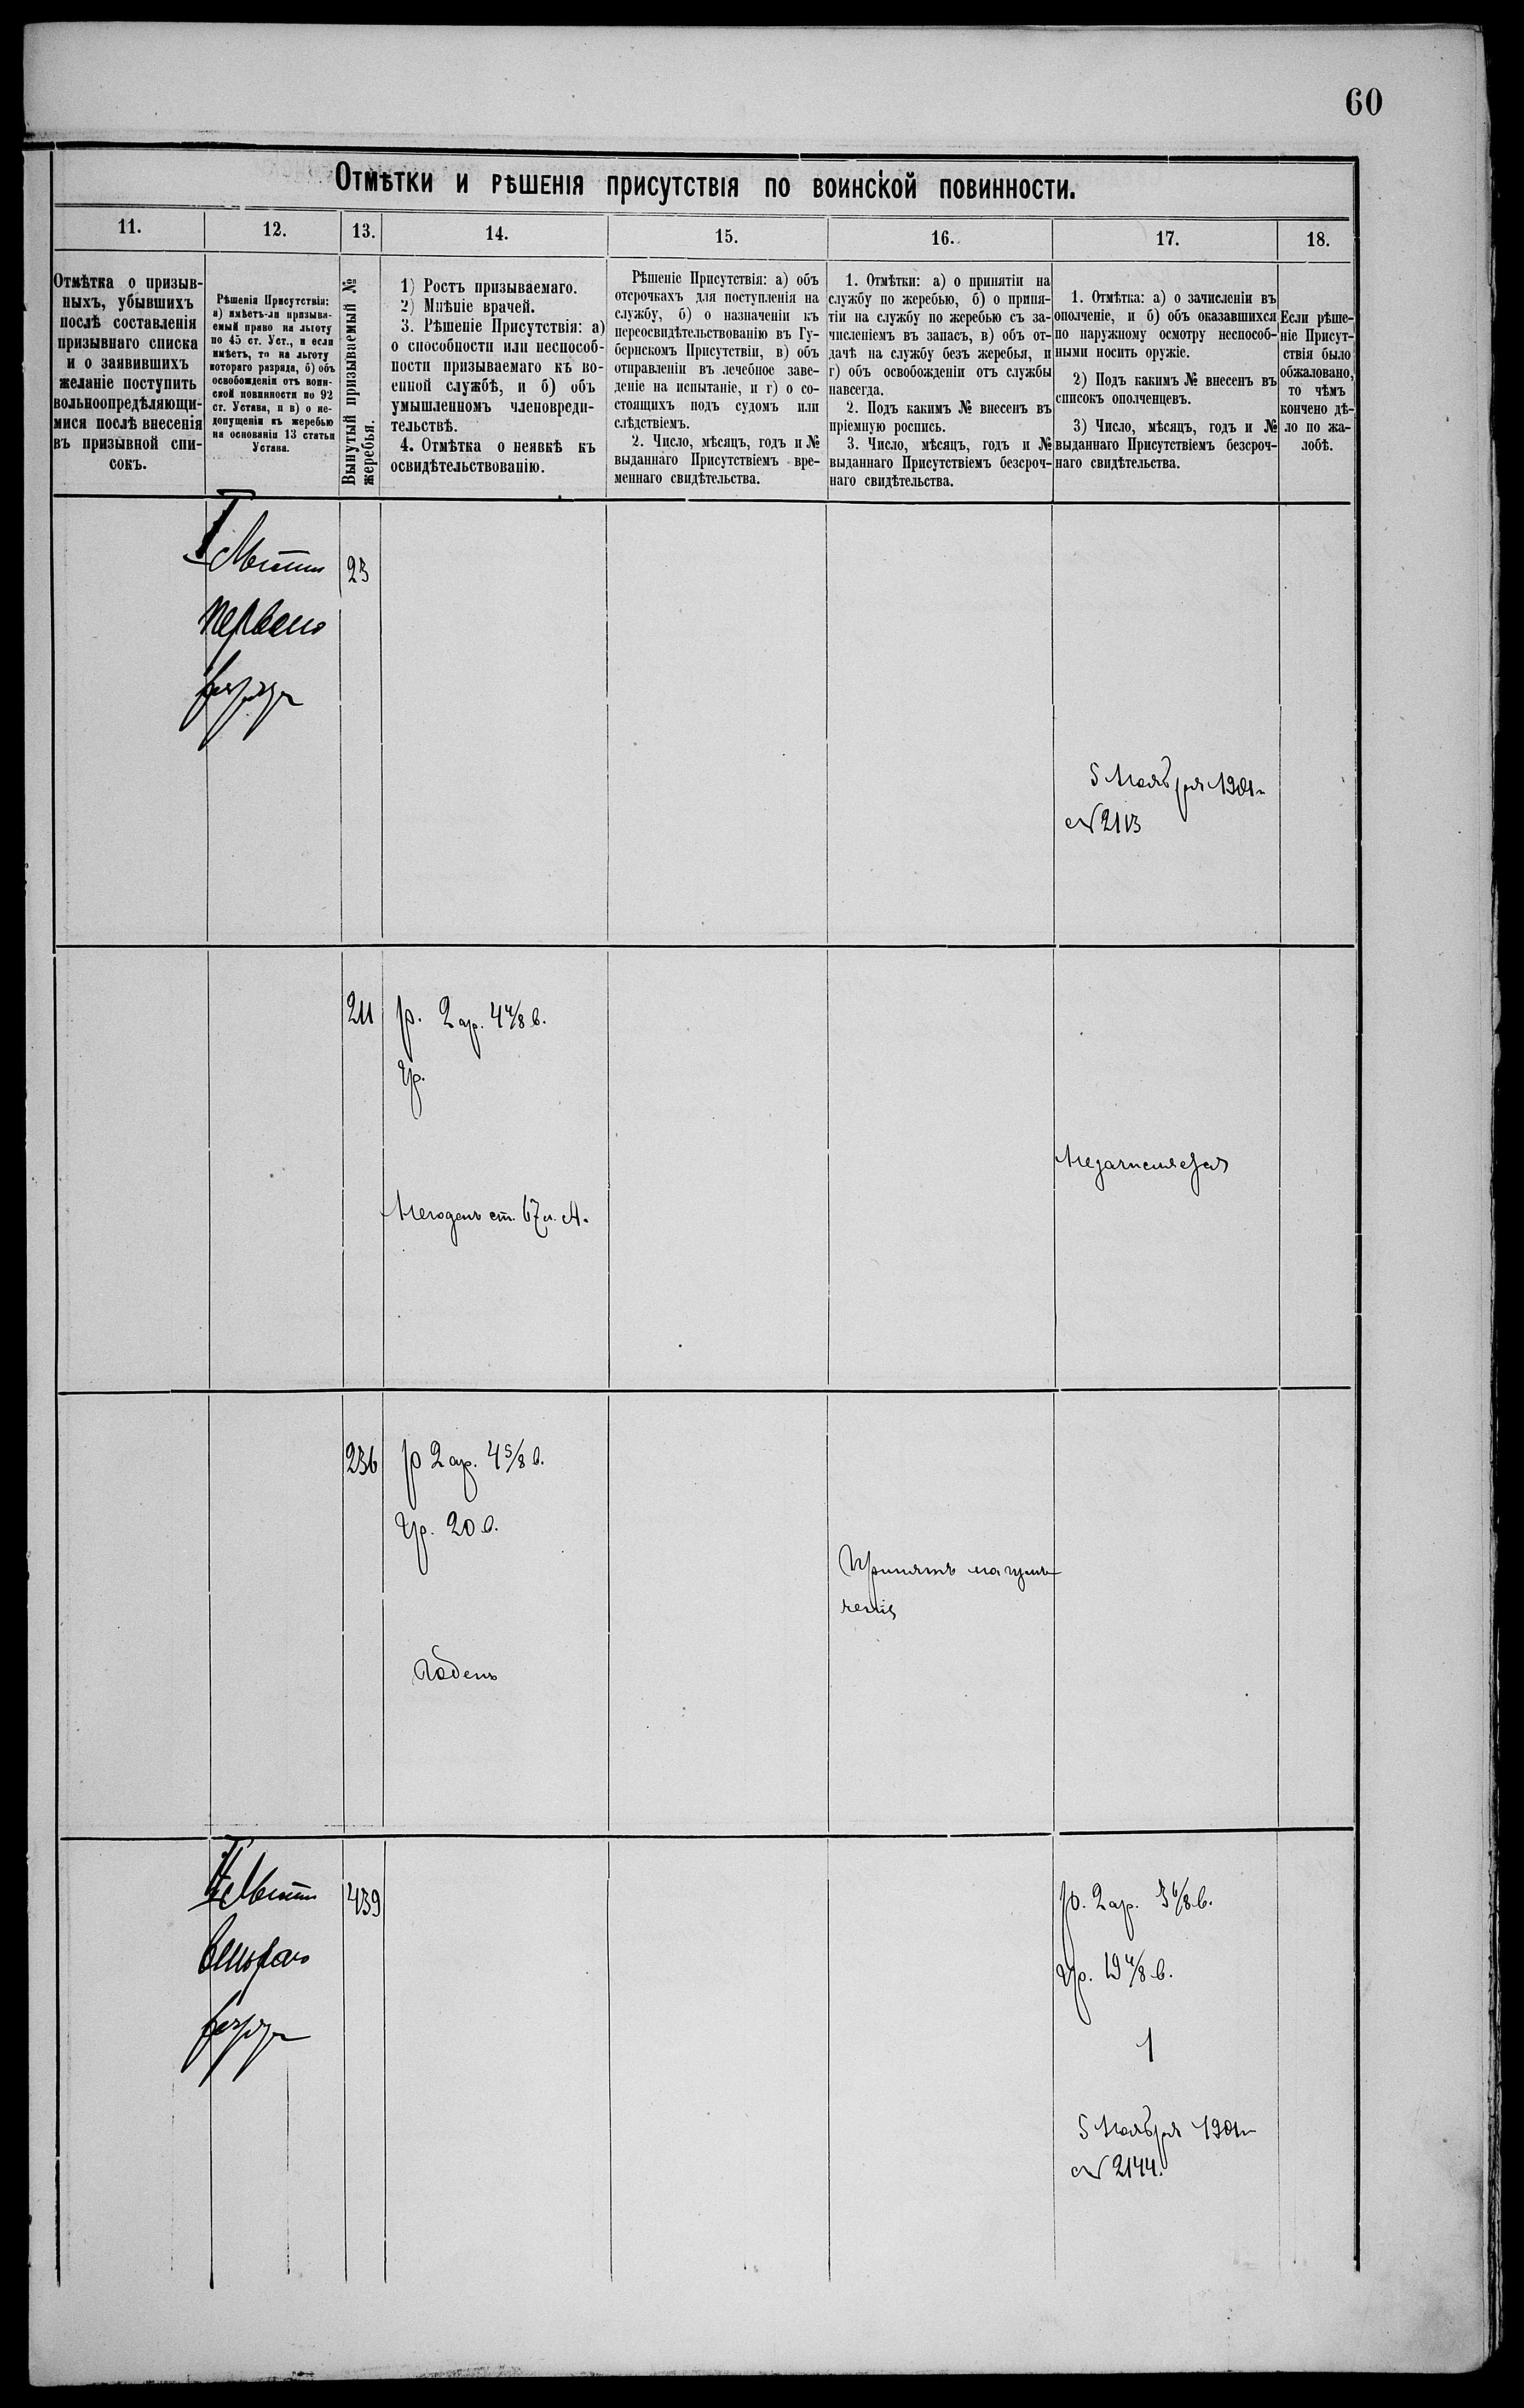 60
Отмѣтки и рѣшенія присутствія по воинской повинности.
11.
12.
13.
14.
15.
16.
17.
18.
Отмѣтка о призыв-
ныхъ, убывшихъ
послѣ составленія
призывнаго списка
и о заявившихъ
желаніе поступить
вольноопредѣляющи-
мися послѣ внесенія
въ призывной спи-
сокъ.
Рѣшенія Присутствія:
а) имѣетъ-ли призыва-
емый право на льготу
по 45 ст. Уст., и если
имѣетъ, то на льготу
котораго разряда, б) объ
освобожденіи отъ воин-
ской повинности по 92
ст. Устава, и в) о не-
допущеніи къ жеребью
на основаніи 13 статьи
Устава.
Вынутый призываемый №
жеребья.
1) Ростъ призываемаго.
2) Мнѣніе врачей.
3. Рѣшеніе Присутствія: а)
о способности или неспособ-
ности призываемаго къ во-
енной службѣ, и б) объ
умышленномъ членовреди-
тельствѣ.
4. Отмѣтка о неявкѣ къ
освидѣтельствованію.
Рѣшеніе Присутствія: а) объ
отсрочкахъ для поступленія на
службу, б) о назначеніи къ
переосвидѣтельствованію въ Гу-
бернскомъ Присутствіи, в) объ
отправленіи въ лечебное заве-
деніе на испытаніе, и г) о со-
стоящихъ подъ судомъ или
слѣдствіемъ.
2. Число, мѣсяцъ, годъ и №
выданнаго Присутствіемъ вре-
меннаго свидѣтельства.
1. Отмѣтки: а) о принятіи на
службу по жеребью, б) о приня-
тіи на службу по жеребью съ за-
численіемъ въ запасъ, в) объ от-
дачѣ на службу безъ жеребья, и
г) объ освобожденіи отъ службы
навсегда.
2. Подъ какимъ № внесенъ въ
пріемную роспись.
3. Число, мѣсяцъ, годъ и №
выданнаго Присутствіемъ безсроч-
наго свидѣтельства.
1. Отмѣтка: а) о зачисленіи въ
ополченіе, и б) объ оказавшихся
по наружному осмотру неспособ-
ными носить оружіе.
2) Подъ какимъ № внесенъ въ
списокъ ополченцевъ.
3) Число, мѣсяцъ, годъ и №
выданнаго Присутствіемъ безсроч-
наго свидѣтельства.
Если рѣше-
ніе Присут-
ствія было
обжаловано,
то чѣмъ
кончено дѣ-
ло по жа-
лобѣ.
I
23
перваго
разряда
5 Ноября 1901 г
№ 2113
211
р. 2 ар. 4 4/8 в.
гр.
Негоденъ ст. 67 л. А.
Незачисляется
236
р 2 ар. 4 5/8 в.
гр. 20 в.
Годенъ
Принятъ на
II
439
втораго
разряда
р. 2 ар. 3 6/8 в.
гр. 19 4/8 в.
1
5 Ноября 1901 г
№ 2144.